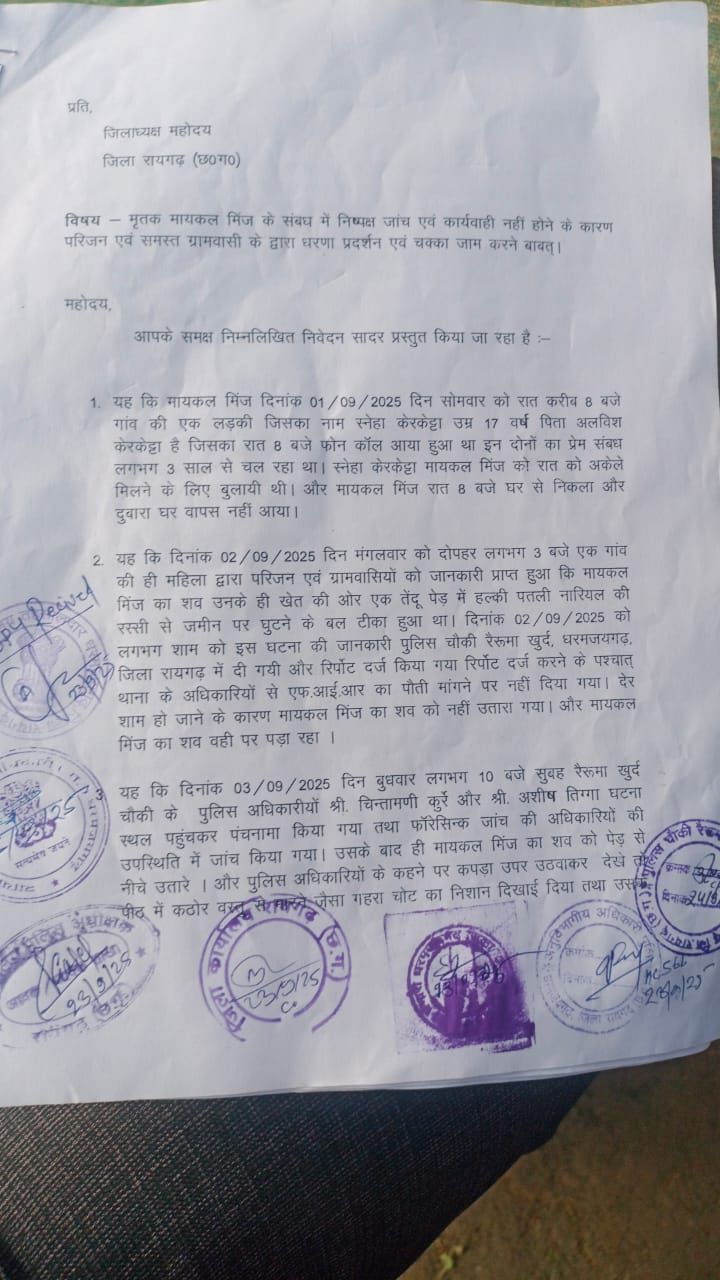 प्रति,
जिलाध्यक्ष महोदय
जिला रायगढ़ (छ0ग0)
विषय – मृतक मायकल मिंज के संबध में निष्पक्ष जांच एवं कार्यवाही नहीं होने के कारण
परिजन एवं समस्त ग्रामवासी के द्वारा धरणा प्रदर्शन एवं चक्का जाम करने बाबत्।
महोदय,
आपके समक्ष निम्नलिखित निवेदन सादर प्रस्तुत किया जा रहा है :–
1. यह कि मायकल मिंज दिनांक 01/09/2025 दिन सोमवार को रात करीब 8 बजे
गांव की एक लड़की जिसका नाम स्नेहा केरकेट्टा उम्र 17 वर्ष पिता अलविश
केरकेट्टा है जिसका रात 8 बजे फोन कॉल आया हुआ था इन दोनों का प्रेम संबध
लगभग 3 साल से चल रहा था। स्नेहा केरकेट्टा मायकल मिंज को रात को अकेले
मिलने के लिए बुलायी थी। और मायकल मिंज रात 8 बजे घर से निकला और
दुबारा घर वापस नहीं आया।
2. यह कि दिनांक 02/09/2025 दिन मंगलवार को दोपहर लगभग 3 बजे एक गांव
की ही महिला द्वारा परिजन एवं ग्रामवासियों को जानकारी प्राप्त हुआ कि मायकल
मिंज का शव उनके ही खेत की ओर एक तेंदू पेड़ में हल्की पतली नारियल की
रस्सी से जमीन पर घुटने के बल टीका हुआ था। दिनांक 02/09/2025 को
लगभग शाम को इस घटना की जानकारी पुलिस चौकी रैरूमा खुर्द, धरमजयगढ़,
जिला रायगढ़ में दी गयी और रिर्पोट दर्ज किया गया रिर्पोट दर्ज करने के पश्चात्
थाना के अधिकारियों से एफ.आई.आर का पौती मांगने पर नहीं दिया गया। देर
शाम हो जाने के कारण मायकल मिंज का शव को नहीं उतारा गया। और मायकल
मिंज का शव वही पर पड़ा रहा ।
3
यह कि दिनांक 03/09/2025 दिन बुधवार लगभग 10 बजे सुबह रैरूमा खुर्द
चौकी के पुलिस अधिकारीयों श्री. चिन्तामणी कुर्रे और श्री. अशीष तिग्गा घटना
स्थल पहुंचकर पंचनामा किया गया तथा फॉरेसिन्क जांच की अधिकारियों की
उपस्थिति में जांच किया गया। उसके बाद ही मायकल मिंज का शव को पेड़ से
नीचे उतारे । और पुलिस अधिकारियों के कहने पर कपड़ा उपर उठवाकर देखे तो
पीठ में कठोर वस्तु से मारने जैसा गहरा चोट का निशान दिखाई दिया तथा उसके
23/9/25
सत्यमेव जयते
23/9/25
जिला कार्यालय रायगढ़ (छ.ग.)
23/9/25
अनुविभागीय अधिकारी
क्रमांक
दिनांक
जिला रायगढ़
पुलिस चौकी
क्रमांक
दिनांक